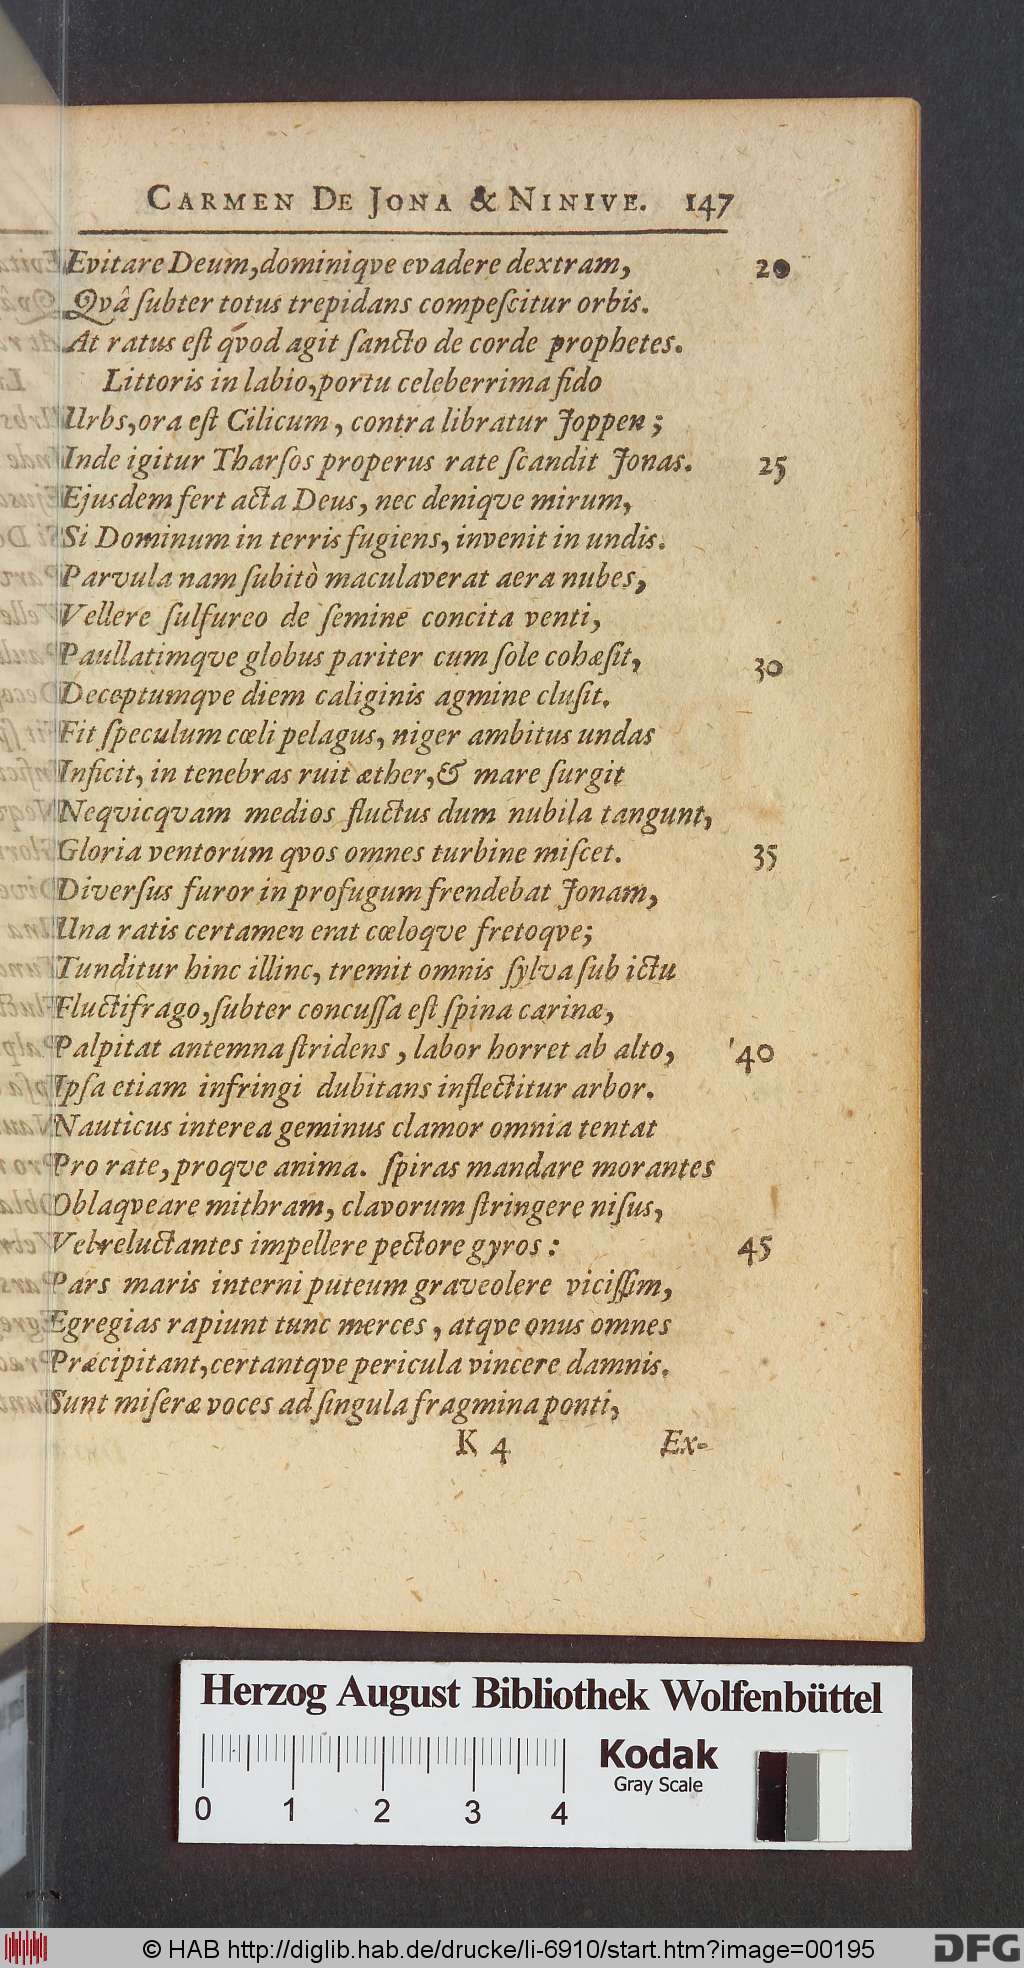 CARMEN DE JONA & NINIVE. 147
Evitare Deum,dominiqve evadere dextram, 20
Qvâ ſubter totus trepidans compeſcitur orbis.
At ratus eſt qvod agit ſancto de corde prophetes.
Littoris in labio,portu celeberrima fido
Urbs,ora eſt Cilicum, contra libratur Joppen;
Inde igitur Tharſos properus rate ſcandit Jonas. 25
Ejusdem fert acta Deus, nec deniqve mirum,
Si Dominum in terris fugiens, invenit in undis.
Parvula nam ſubitò maculaverat aera nubes,
Vellere ſulfureo de ſemine concita venti,
Paullatimqve globus pariter cum ſole cohæſit, 30
Deceptumqve diem caliginis agmine cluſit.
Fit ſpeculum cœli pelagus, niger ambitus undas
Inficit, in tenebras ruit æther,& mare ſurgit
Neqvicqvam medios fluctus dum nubila tangunt,
Gloria ventorum qvos omnes turbine miſcet. 35
Diverſus furor in profugum frendebat Jonam,
Una ratis certamen erat cœloqve fretoqve;
Tunditur hinc illinc, tremit omnis ſylva ſub ictu
Fluctifrago,ſubter concuſſa eſt ſpina carinæ,
Palpitat antemna ſtridens, labor horret ab alto, 40
Ipſa etiam infringi dubitans inflectitur arbor.
Nauticus interea geminus clamor omnia tentat
Pro rate, proqve anima. ſpiras mandare morantes
Oblaqveare mithram, clavorum ſtringere niſus,
Vel reluctantes impellere pectore gyros: 45
Pars maris interni puteum graveolere viciſſim,
Egregias rapiunt tunc merces, atqve onus omnes
Præcipitant,certantqve pericula vincere damnis.
Sunt miſeræ voces ad ſingula fragmina ponti,
K 4 Ex-
Herzog August Bibliothek Wolfenbüttel
Kodak
Gray Scale
0 1 2 3 4
© HAB http://diglib.hab.de/drucke/li-6910/start.htm?image=00195
DFG